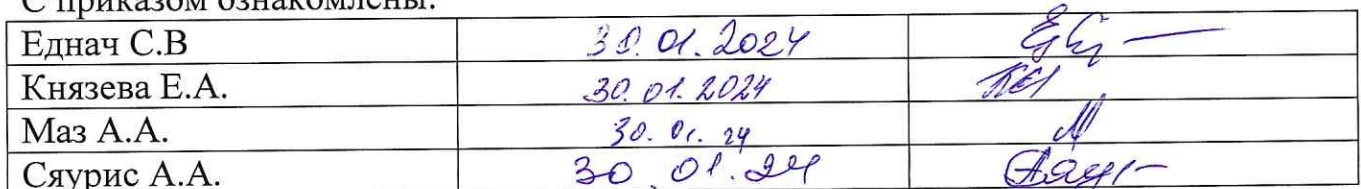 С приказом ознакомлены:
Еднач С.В 30.01.2024
Князева Е.А. 30.01.2024
Маз А.А. 30.01.24
Сяурис А.А. 30.01.24